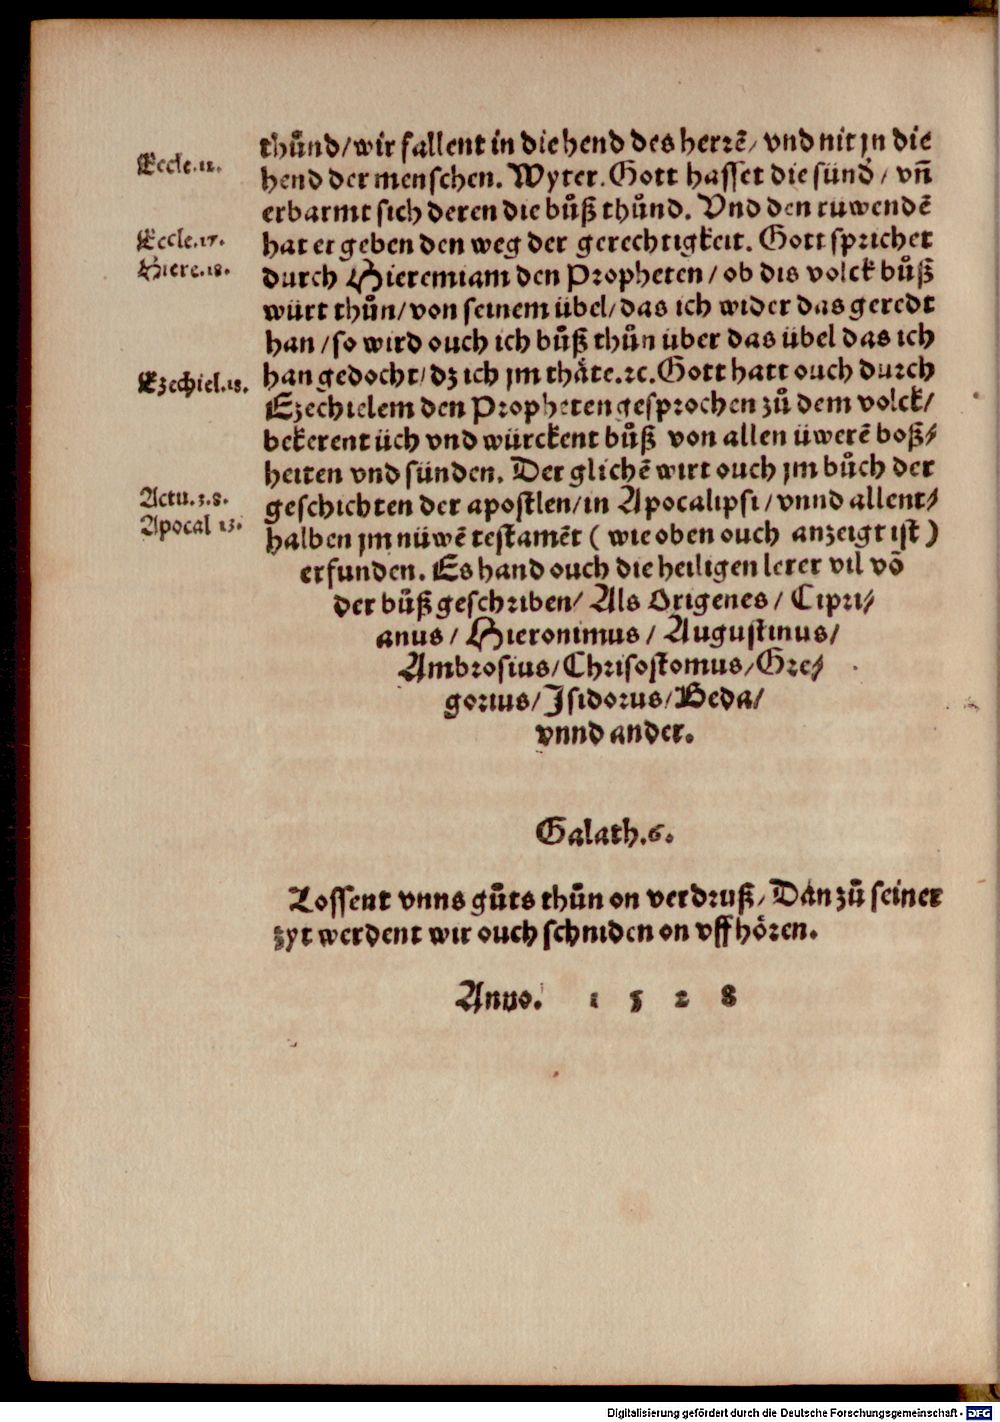 thůnd/wir fallent in die hend des herrē/ vnd nit jn die
Eccle.12.
hend der menschen. Wyter. Gott hasset die sünd/ vñ
erbarmt sich deren die bůß thůnd. Vnd den ruwendē
Eccle.17.
hat er geben den weg der gerechtigkeit. Gott sprichet
Hiere.18.
durch Hieremiam den Propheten/ ob dis volck bůß
würt thůn/von seinem übel/das ich wider das geredt
han/so wird ouch ich bůß thůn über das übel das ich
Ezechiel.18.
han gedocht/dz ich jm thäte.ꝛc. Gott hatt ouch durch
Ezechielem den Propheten gesprochen zů dem volck/
bekerent üch vnd würckent bůß von allen üwerē boß⸗
heiten vnd sünden. Der glichē wirt ouch jm bůch der
Actu.3.8.
geschichten der apostlen/in Apocalipsi/vnnd allent⸗
Apocal 13.
halben jm nüwē testamēt ( wie oben ouch anzeigt ist )
erfunden. Es hand ouch die heiligen lerer vil võ
der bůß geschriben/ Als Origenes/ Cipri⸗
anus/ Hieronimus/ Augustinus/
Ambrosius/Chrisostomus/Gre⸗
gorius/Isidorus/Beda/
vnnd ander.
Galath.6.
Lossent vnns gůts thůn on verdruß/ Dan zů seiner
zyt werdent wir ouch schniden on vffhören.
Anno. 1 5 2 8
Digitalisierung gefördert durch die Deutsche Forschungsgemeinschaft - DFG